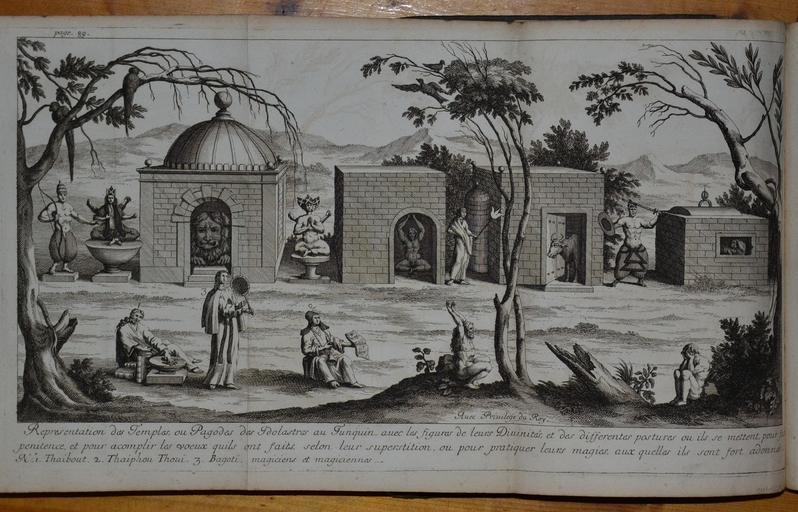 page. 89.
Avec Privilege du Roy
Representation des Temples ou Pagodes des Idolastres au Tunquin, avec les figures de leurs Divinités, et des differentes postures ou ils se mettent, pour
penitence, et pour acomplir les voeux quils ont faits, selon leur superstition, ou pour pratiquer leurs magies, aux quelles ils sont fort
N.° 1. Thaibout. 2. Thaiphou Thoui. 3. Bagoti, magiciens et magiciennes